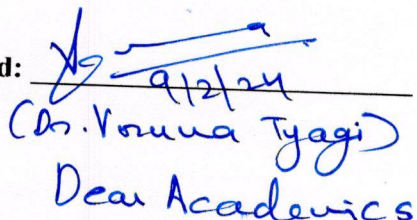 d:
9/2/24
(Dr. Varuna Tyagi)
Dean Academics